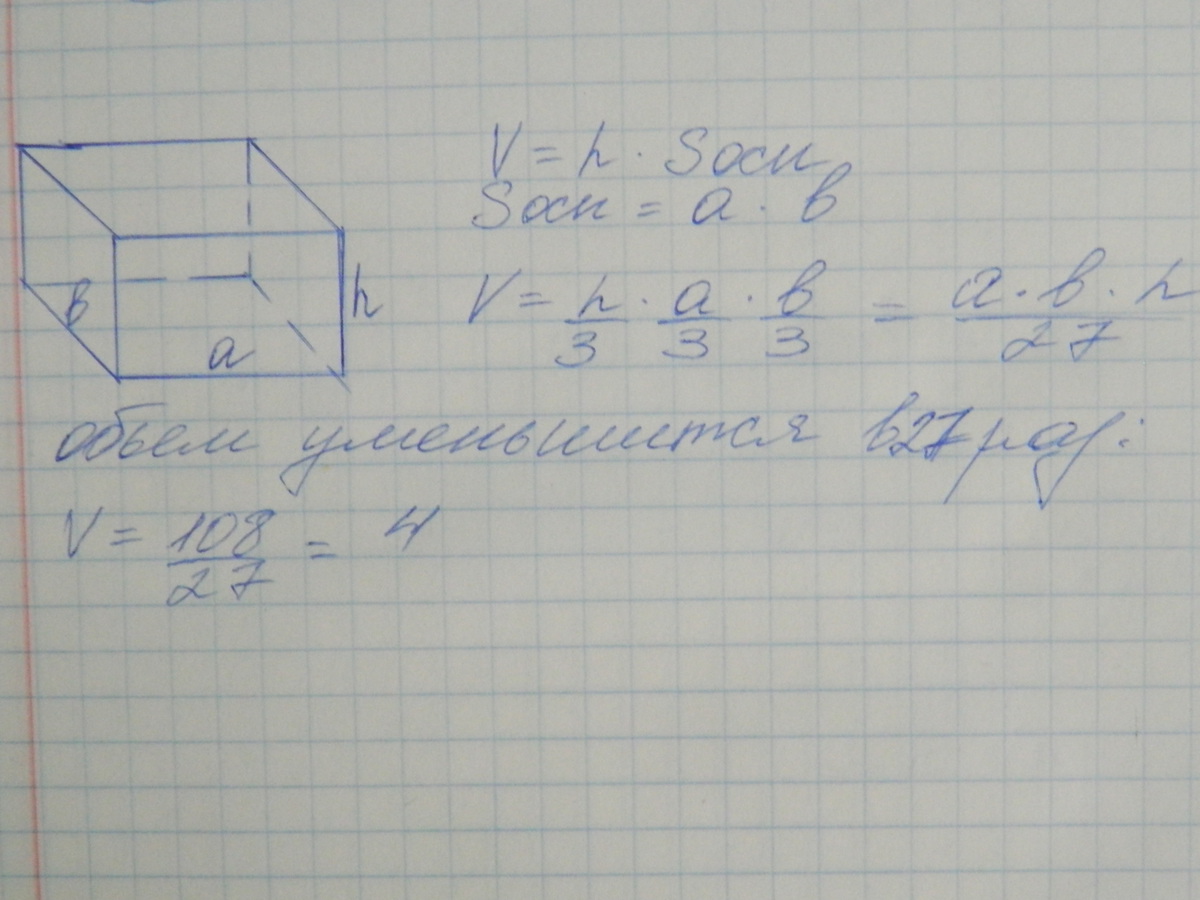 V = h · Sосн
Sосн = a · b
V = h/3 · a/3 · b/3 = a · b · h/27
b
h
a
объем уменьшится в 27 раз:
V = 108/27 = 4